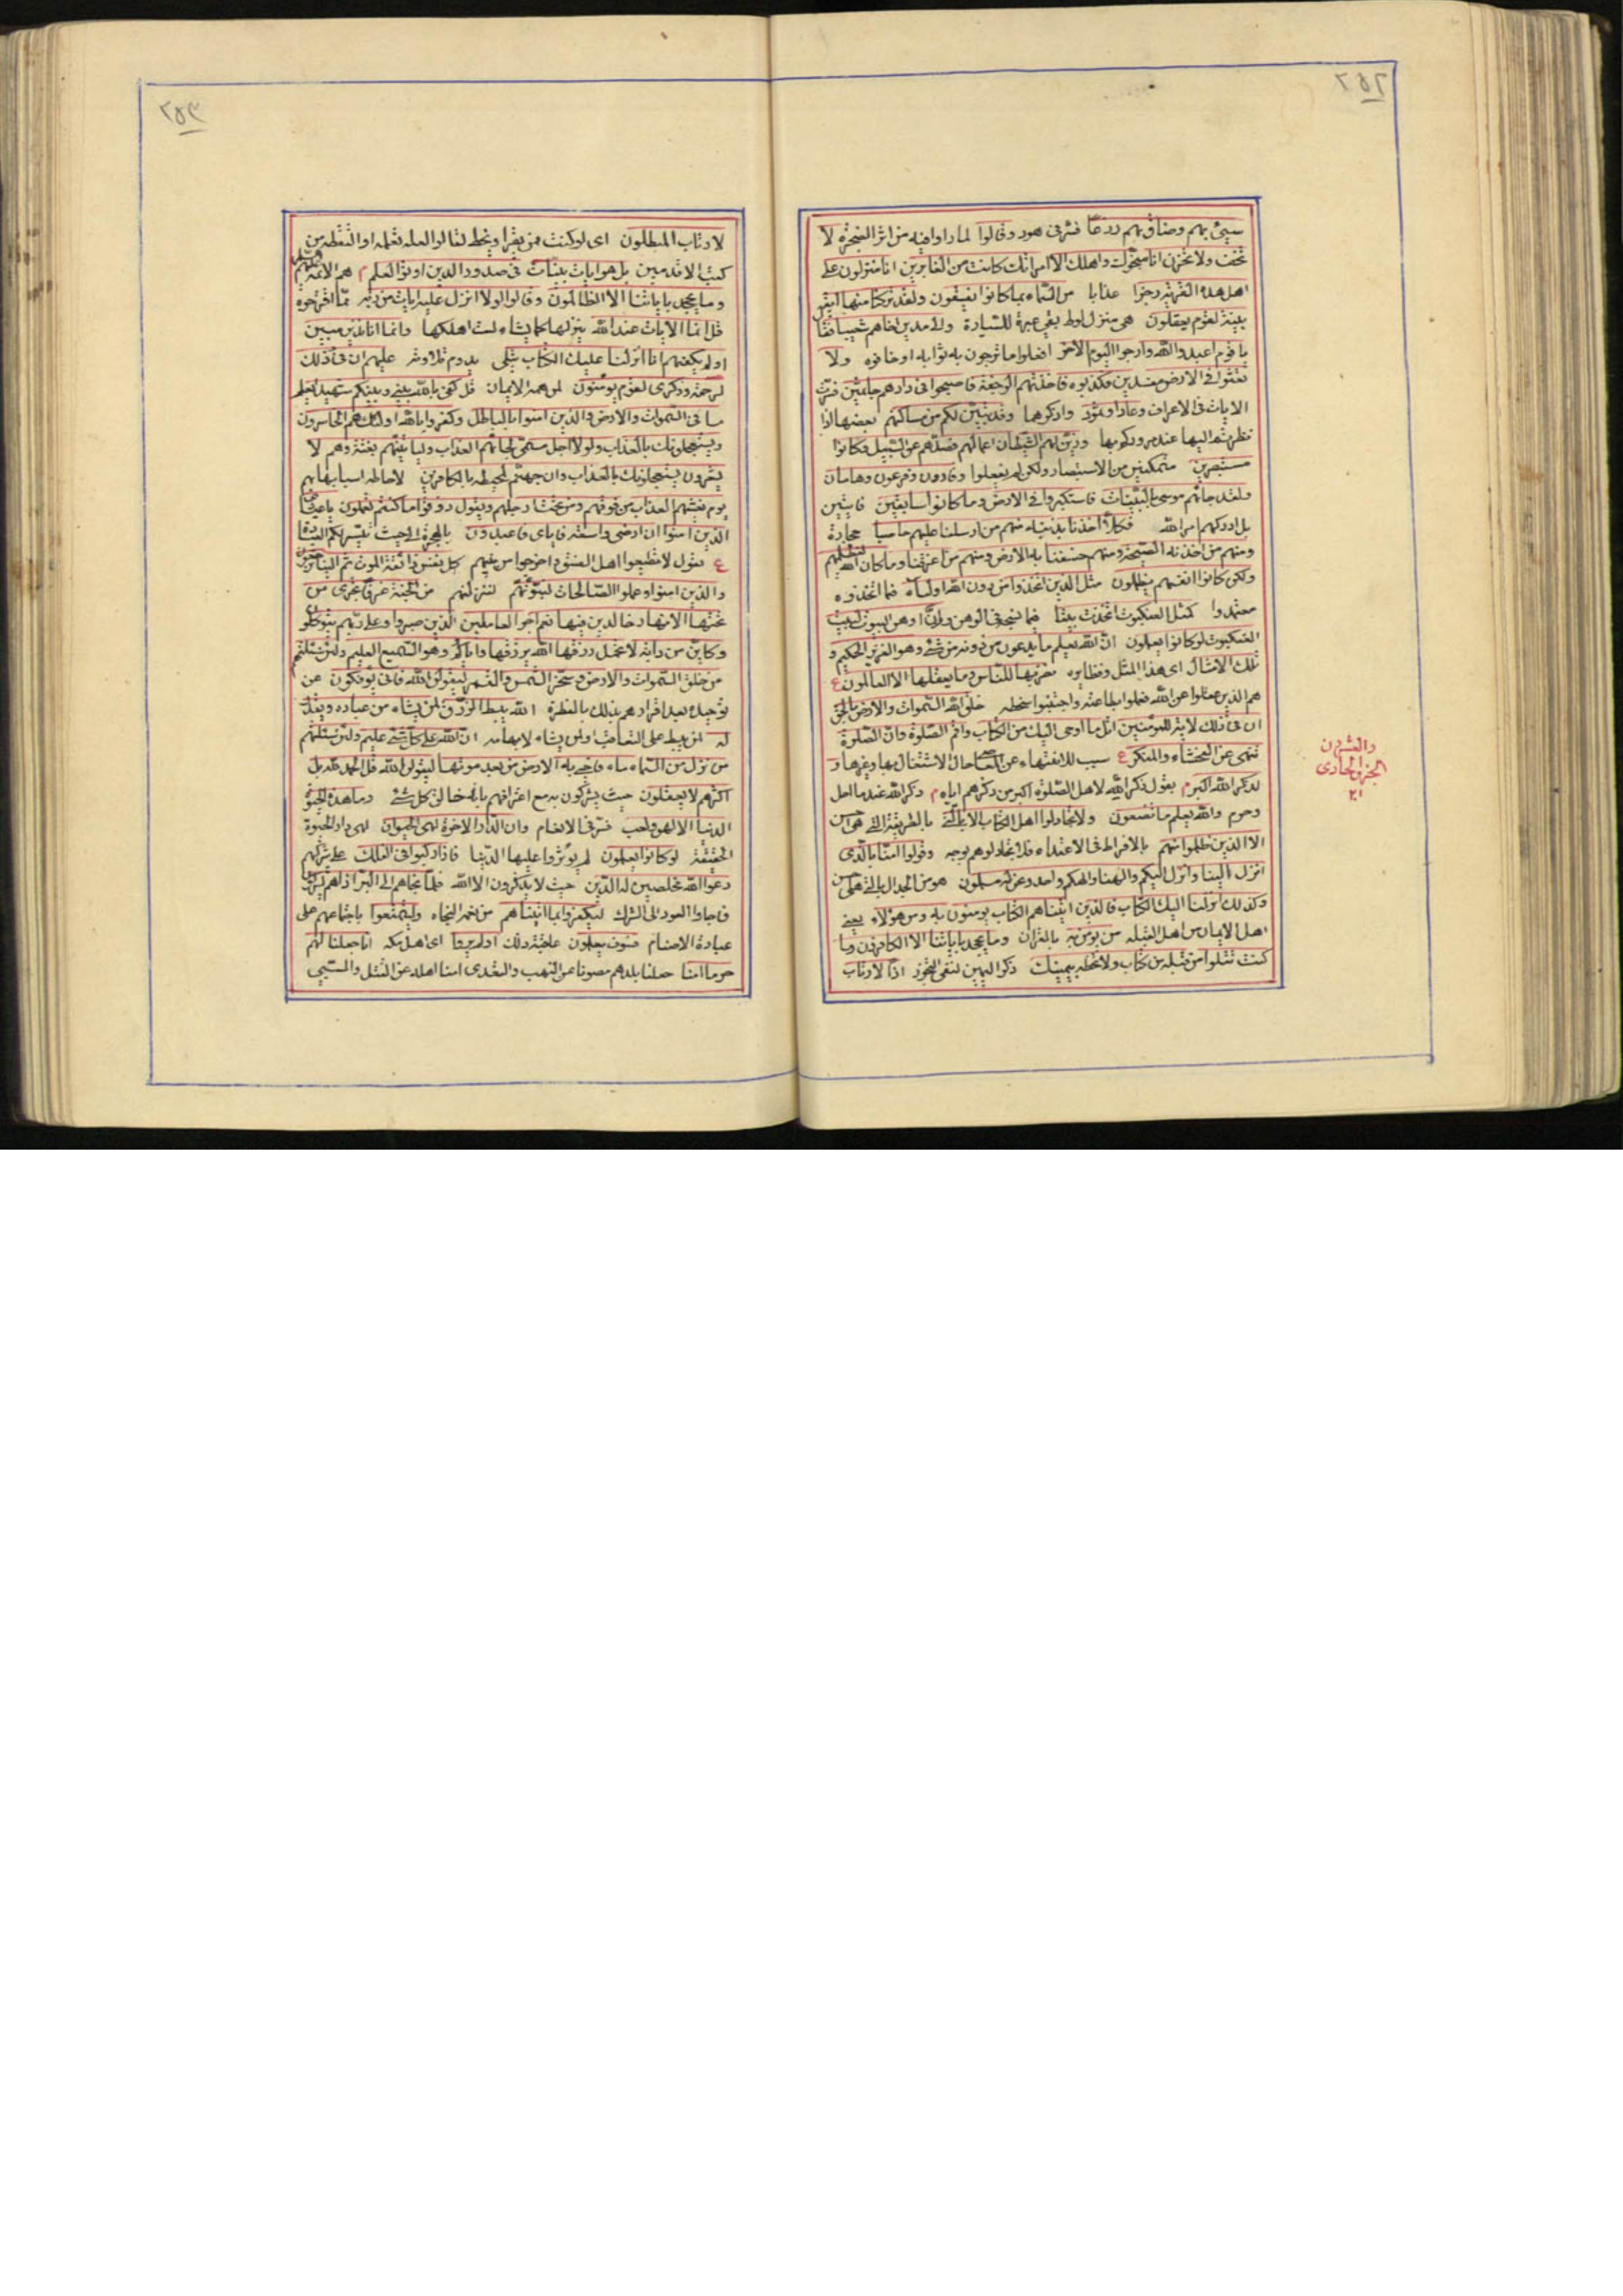 ٢٥٢
سيئ بهم وضاق بهم ذرعا فسر فى هود وقالوا لما راوا فيه من اثر الضجرة لا
تخف ولا تحزن انا منجوك واهلك الا امراتك كانت من الغابرين انا منزلون على
اهل هذه القرية رجزا عذابا من السماء بما كانوا يفسقون ولقد تركنا منها اية
بينة لقوم يعقلون هى منزل لوط بقى عبرة للسيارة والى مدين اخاهم شعيبا فقال
يا قوم اعبدوا الله وارجوا اليوم الاخر افعلوا ما ترجون به ثوابه او خافوه ولا
تعثوا فى الارض مفسدين فكذبوه فاخذتهم الرجفة فاصبحوا فى دارهم جاثمين فسرت
الايات فى الاعراف وعادا وثمود واذكرهما وقد تبين لكم من مساكنهم بعضها اذا
نظرتم اليها عند مروركم بها وزين لهم الشيطان اعمالهم فصدهم عن السبيل وكانوا
مستبصرين متمكنين من الاستبصار ولكن لم يفعلوا وقارون وفرعون وهامان
ولقد جائهم موسى بالبينات فاستكبروا فى الارض وما كانوا سابقين فايتين
بل ادركهم امر الله فكلا اخذنا بذنبه فمنهم من ارسلنا عليهم حاصبا حجارة
ومنهم من اخذته الصيحة ومنهم من خسفنا به الارض ومنهم من اغرقنا وما كان الله ليظلمهم
ولكن كانوا انفسهم يظلمون مثل الذين اتخذوا من دون الله اولياء فيما اتخذوه
معتمدا كمثل العنكبوت اتخذت بيتا فيما نسجه فى الوهن وان اوهن البيوت لبيت
العنكبوت لو كانوا يعلمون ان الله يعلم ما يدعون من دونه من شئ وهو العزيز الحكيم و
تلك الامثال اى هذا المثل ونظايره نضربها للناس وما يعقلها الا العالمون ع
هم الذين عقلوا عن الله فعملوا بطاعته واجتنبوا سخطه خلق الله السموات والارض بالحق
ان فى ذلك لاية للمؤمنين اتل ما اوحى اليك من الكتاب واقم الصلوة وان الصلوة
تنهى عن الفحشاء والمنكر ع سبب للانتهاء عن المعاصى حال الاشتغال بها وغيرها و
لذكر الله اكبر م يقول ذكر الله لاهل الصلوة اكبر من ذكرهم اياه م ذكر الله عند ما احل
وحرم والله يعلم ما تصنعون ولا تجادلوا اهل الكتاب الا بالتى بالطريقة التى هى احسن
الا الذين ظلموا منهم بالافراط فى الاعتداء فلا تجادلوهم بوجه وقولوا امنا بالذى
انزل الينا وانزل اليكم والهنا والهكم واحد ونحن له مسلمون هو من الجدال بالتى هى احسن
وكذلك انزلنا اليك الكتاب فالذين اتيناهم الكتاب يؤمنون به ومن هؤلاء يعنى
اهل الايمان من اهل القبلة من يؤمن به بالقران وما يجحد باياتنا الا الكافرون وما
كنت تتلوا من قبله من كتاب ولا تخطه بيمينك ذكر اليمين لنفى التجوز اذا لارتاب
والعشرون
الجزو الحادى
٢١
٢٥٣
لارتاب المبطلون اى لو كنت ممن يقرا ويخط لقالوا لعله تعلمه او التقطه من
كتب الاقدمين بل هو ايات بينات فى صدور الذين اوتوا العلم م هم الائمة عليهم السلام
وما يجحد باياتنا الا الظالمون وقالوا لولا انزل عليه ايات من ربه مما اقترحوه
قل انما الايات عند الله ينزلها كما يشاء لست املكها وانما انا نذير مبين
اولم يكفهم انا انزلنا عليك الكتاب يتلى يدوم تلاوته عليهم ان فى ذلك
لرحمة وذكرى لقوم يؤمنون لمن همه الايمان قل كفى بالله بينى وبينكم شهيدا يعلم
ما فى السموات والارض والذين امنوا بالباطل وكفروا بالله اولئك هم الخاسرون
ويستعجلونك بالعذاب ولولا اجل مسمى لجائهم العذاب ولياتينهم بغتة وهم لا
يشعرون يستعجلونك بالعذاب وان جهنم لمحيطة بالكافرين لاحاطة اسبابها بهم
يوم يغشيهم العذاب من فوقهم ومن تحت ارجلهم ويقول ذوقوا ما كنتم تعملون يا عبادى
الذين امنوا ان ارضى واسعة فاياى فاعبدون بالهجرة الى حيث تيسر لكم العبادة
ع يقول لا تطيعوا اهل الفسق واخرجوا من بينهم كل نفس ذائقة الموت ثم الينا ترجعون
والذين امنوا وعملوا الصالحات لنبوئنهم لننزلنهم من الجنة غرفا تجرى من
تحتها الانهار خالدين فيها نعم اجر العاملين الذين صبروا وعلى ربهم يتوكلون
وكاين من دابة لا تحمل رزقها الله يرزقها واياكم وهو السميع العليم ولئن سئلتهم
من خلق السموات والارض وسخر الشمس والقمر ليقولن الله فانى يؤفكون عن
توحيده بعد اقرارهم بذلك بالفطرة الله يبسط الرزق لمن يشاء من عباده ويقدر
له لمن يبسط على التعاقب ولمن يشاء لابهامه ان الله على كل شئ عليم ولئن سئلتهم
من نزل من السماء ماء فاحيى به الارض من بعد موتها ليقولن الله قل الحمد لله بل
اكثرهم لا يعقلون حيث يشركون به مع اعترافهم بانه خالق كل شئ وما هذه الحيوة
الدنيا الا لهو ولعب فسر فى الانعام وان الدار الاخرة لهى الحيوان لهى دار الحيوة
الحقيقة لو كانوا يعلمون لم يؤثروا عليها الدنيا فاذا ركبوا فى الفلك على شركهم
دعوا الله مخلصين له الدين حيث لا يذكرون الا الله فلما نجاهم الى البر اذا هم يشركون
فاجاؤا العود الى الشرك ليكفروا بما اتيناهم من نعمة النجاة وليتمتعوا باجتماعهم على
عبادة الاصنام فسوف يعلمون عاقبة ذلك اولم يروا اى اهل مكة انا جعلنا لهم
حرما امنا جعلنا بلدهم مصونا عن النهب والتعدى امنا اهله عن القتل والسبى